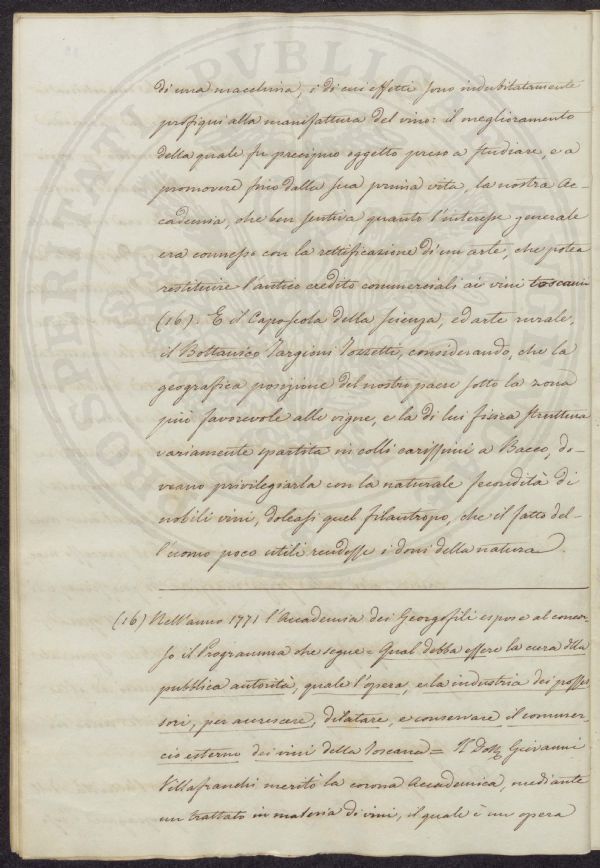 di una macchina, i di cui effetti sono indubitatamente
proficui alla manifattura del vino: il meglioramento
della quale fu precipuo oggetto preso a studiare, e a
promovere fino dalla sua prima vita, la nostra Ac-
cademia, che ben sentiva quanto l'interesse generale
era connesso con la rettificazione di un'arte, che potea
restituire l'antico credito commerciali ai vini toscani
(16). E il Caposcola della scienza, ed arte rurale,
il Bottanico Targioni Tozzetti, considerando, che la
geografica posizione del nostro paese sotto la zona
più favorevole alle vigne, e la di lui fisica struttura
variamente spartita in colli carissimi a Bacco, do-
veano privilegiarla con la naturale fecondità di
nobili vini, doleasi quel filantropo, che il fatto del-
l'uomo poco utili rendesse i doni della natura.
(16) Nell'anno 1771 l'Accademia dei Georgofili espose al concor-
so il Programma che segue = Qual debba essere la cura della
pubblica autorità, quale l'opera, e la industria dei posses-
sori, per accrescere, dilatare, e conservare il commer-
cio esterno dei vini della Toscana = Il Dott. Giovanni
Villafranchi meritò la corona Accademica, mediante
un trattato in materia di vini, il quale è un opera
PROSPERITATI PUBLICAE